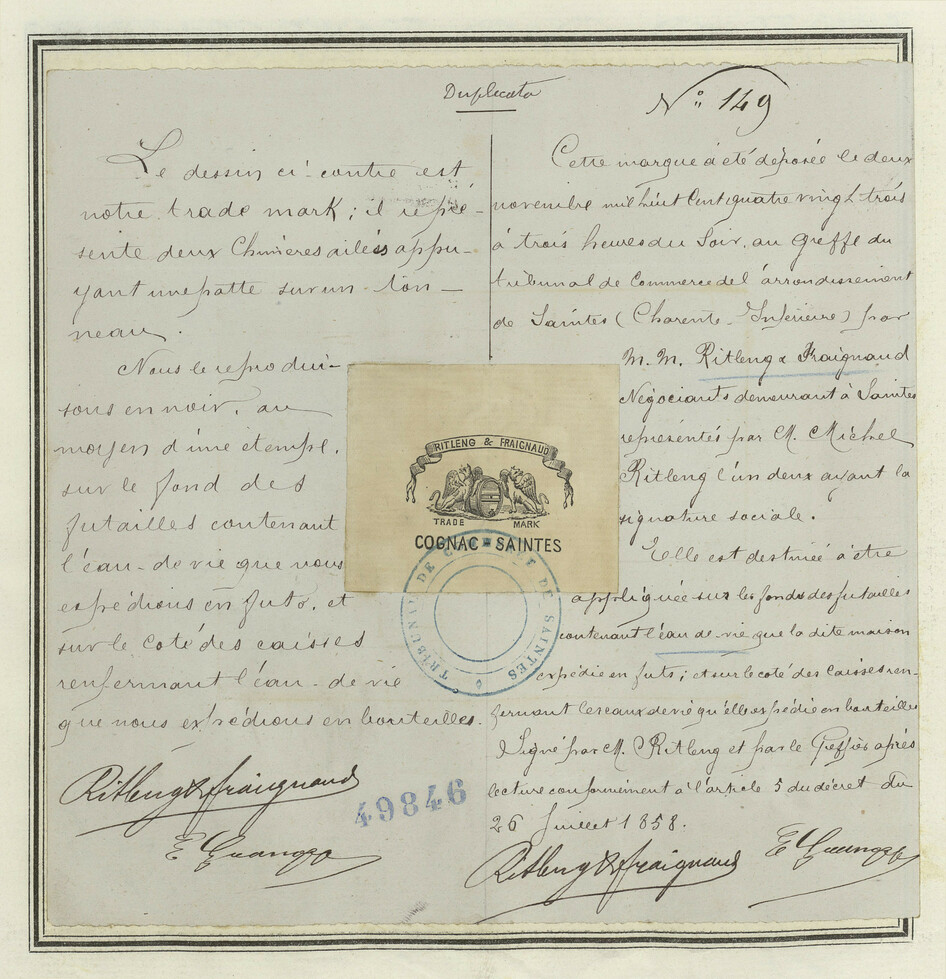 Duplicata
Le dessin ci-contre est
notre trade mark; il repré-
sente deux Chimères ailées appu-
yant une patte sur un ton-
neau.
Nous le reprodui-
sons en noir, au
moyen d'une étampe,
sur le fond des
futailles contenant
l'eau-de-vie que nous
expédions en futs, et
sur le coté des caisses
renfermant l'eau-de-vie
que nous expédions en bouteilles.
Ritleng & Fraignaud
49846
N° 149
Cette marque a été déposée le deux
novembre mil huit cent quatre vingt trois
à trois heures du Soir, au Greffe du
tribunal de Commerce de l'arrondissement
de Saintes (Charente-Inférieure) par
M. M. Ritleng & Fraignaud
Négociants demeurant à Saintes
représentés par M. Michel
Ritleng l'un deux ayant la
signature sociale.
Elle est destinée à être
appliquée sur les fonds des futailles
contenant l'eau-de-vie que la dite maison
expédie en futs; et sur le coté des caisses ren-
fermant les eaux de vie qu'elle expédie en bouteilles
Signé par M. Ritleng et par le Greffier après
lecture conformément à l'article 5 du décret du
26 Juillet 1858.
Ritleng & Fraignaud
RITLENG & FRAIGNAUD
TRADE MARK
COGNAC-SAINTES
TRIBUNAL DE COMMERCE DE SAINTES